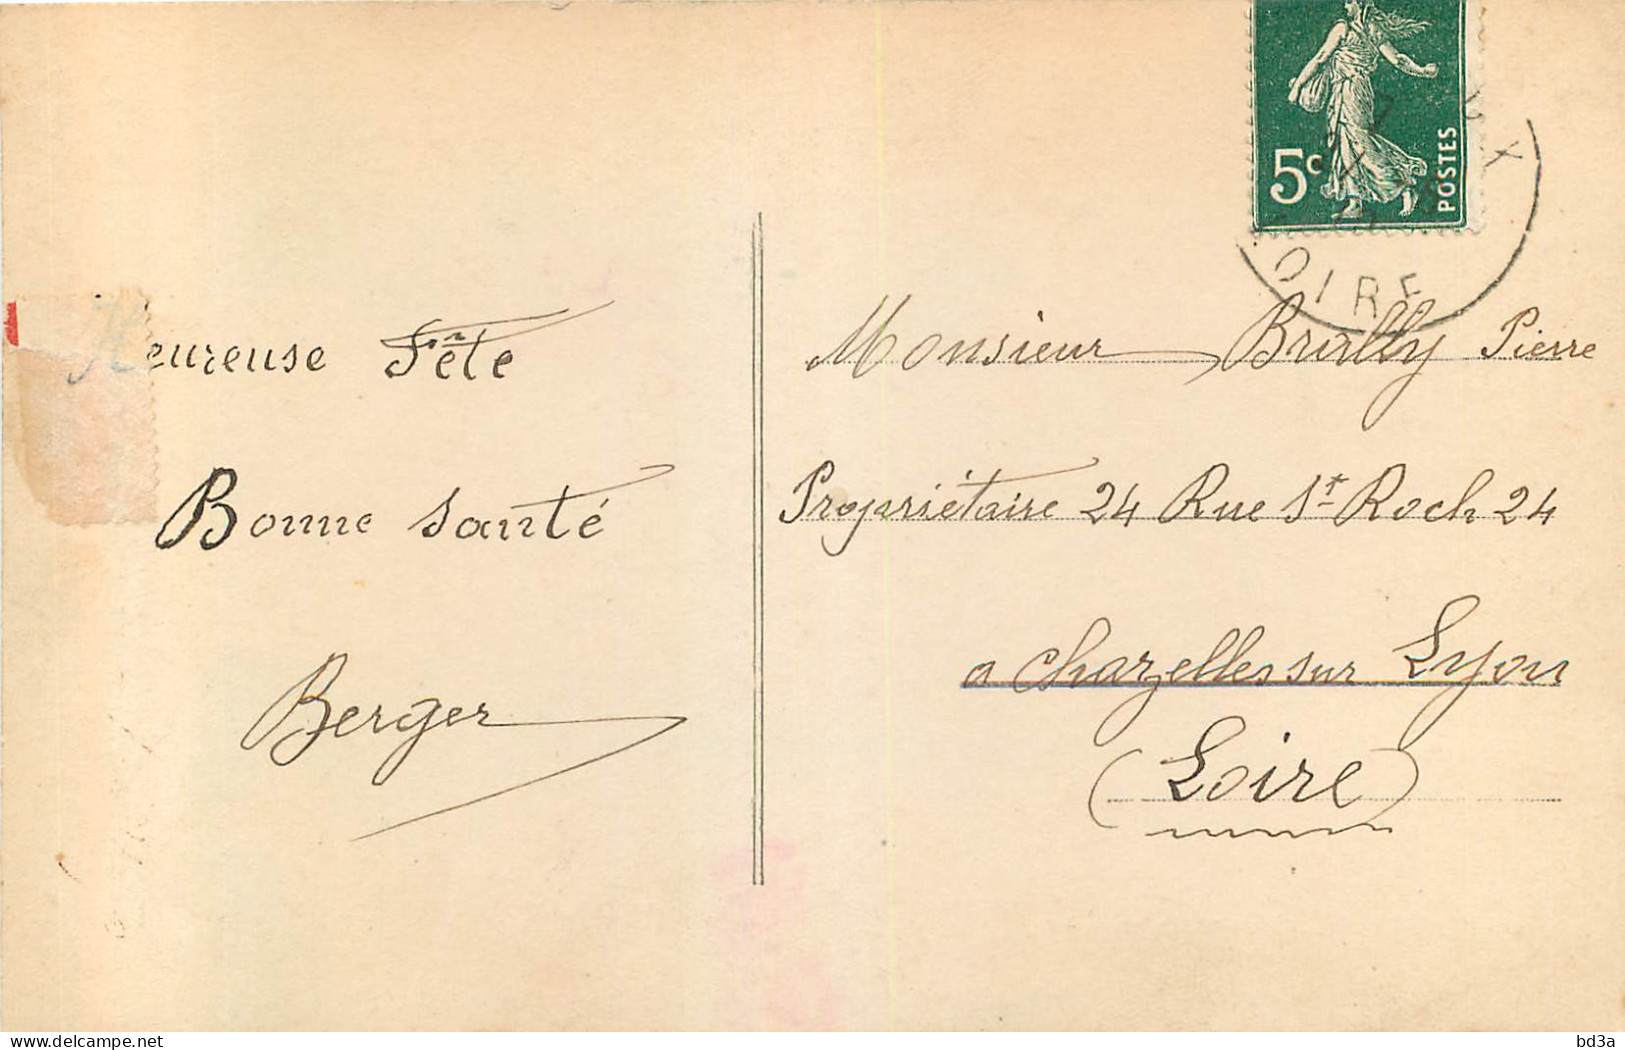 Heureuse Fête
Bonne Santé
Berger
5c
POSTES
OIRE
Monsieur Brally Pierre
Propriétaire 24 Rue St Roch 24
a Chazelles sur Lyon
(Loire)
delcampe.net
bd3a